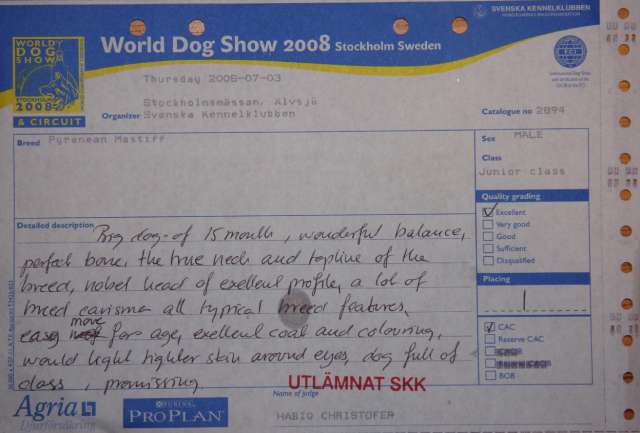 SVENSKA KENNELKLUBBEN
World Dog Show 2008 Stockholm Sweden
WORLD DOG SHOW STOCKHOLM 2008 & CIRCUIT
Thursday 2008-07-03
Stockholmsmässan, Älvsjö
Organizer Svenska Kennelklubben
FCI
Catalogue no 2894
Breed Pyrenean Mastiff
Sex MALE
Class
Junior class
Quality grading
Excellent
Very good
Good
Sufficient
Disqualified
Placing
1
CAC
Reserve CAC
BOB
Detailed description Big dog of 15 month, wonderful balance,
perfect bone, the true neck and topline of the
breed, nobel head of exellent profile, a lot of
breed carisma all typical breed features,
easy move for age, exellent coat and colouring,
would light tighter skin around eyes, dog full of
class, promissing.
UTLÄMNAT SKK
Name of judge
HABIG CHRISTOFER
Agria
Djurförsäkring
PURINA
PRO PLAN